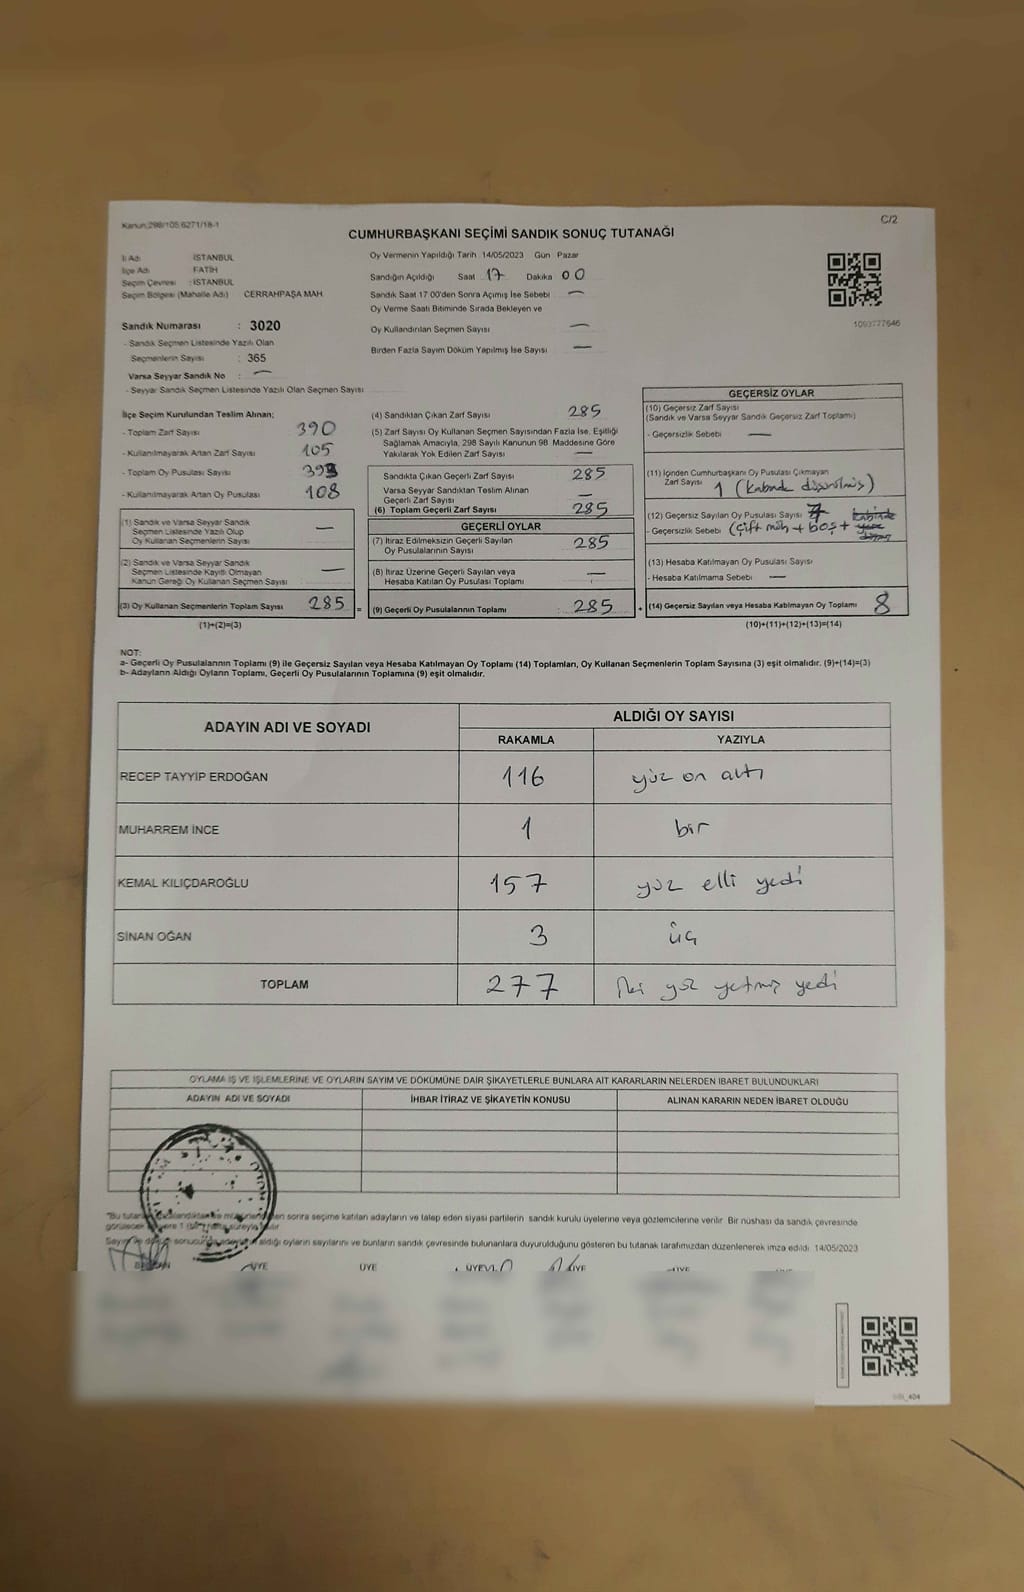 Kanun;298/105;6271/18-1
C/2
CUMHURBAŞKANI SEÇİMİ SANDIK SONUÇ TUTANAĞI
İl Adı İSTANBUL
İlçe Adı FATİH
Seçim Çevresi : İSTANBUL
Seçim Bölgesi (Mahalle Adı) CERRAHPAŞA MAH.
Oy Vermenin Yapıldığı Tarih 14/05/2023 Gün Pazar
Sandığın Açıldığı Saat 17 Dakika 00
Sandık Saat 17:00'den Sonra Açımış İse Sebebi —
Oy Verme Saati Bitiminde Sırada Bekleyen ve
Oy Kullandırılan Seçmen Sayısı —
Birden Fazla Sayım Döküm Yapılmış İse Sayısı —
1093777646
Sandık Numarası : 3020
- Sandık Seçmen Listesinde Yazılı Olan
Seçmenlerin Sayısı : 365
Varsa Seyyar Sandık No : —
- Seyyar Sandık Seçmen Listesinde Yazılı Olan Seçmen Sayısı
İlçe Seçim Kurulundan Teslim Alınan;
- Toplam Zarf Sayısı 390
- Kullanılmayarak Artan Zarf Sayısı 105
- Toplam Oy Pusulası Sayısı 393
- Kullanılmayarak Artan Oy Pusulası 108
(1) Sandık ve Varsa Seyyar Sandık
Seçmen Listesinde Yazılı Olup
Oy Kullanan Seçmenlerin Sayısı —
(2) Sandık ve Varsa Seyyar Sandık
Seçmen Listesinde Kayıtlı Olmayan
Kanun Gereği Oy Kullanan Seçmen Sayısı —
(3) Oy Kullanan Seçmenlerin Toplam Sayısı 285 =
(1)+(2)=(3)
(4) Sandıktan Çıkan Zarf Sayısı 285
(5) Zarf Sayısı Oy Kullanan Seçmen Sayısından Fazla İse, Eşitliği
Sağlamak Amacıyla, 298 Sayılı Kanunun 98. Maddesine Göre
Yakılarak Yok Edilen Zarf Sayısı —
Sandıkta Çıkan Geçerli Zarf Sayısı 285
Varsa Seyyar Sandıktan Teslim Alınan
Geçerli Zarf Sayısı —
(6) Toplam Geçerli Zarf Sayısı 285
GEÇERLİ OYLAR
(7) İtiraz Edilmeksizin Geçerli Sayılan
Oy Pusulalarının Sayısı 285
(8) İtiraz Üzerine Geçerli Sayılan veya
Hesaba Katılan Oy Pusulası Toplamı —
(9) Geçerli Oy Pusulalarının Toplamı : 285 +
GEÇERSİZ OYLAR
(10) Geçersiz Zarf Sayısı
(Sandık ve Varsa Seyyar Sandık Geçersiz Zarf Toplamı)
- Geçersizlik Sebebi —
(11) İçinden Cumhurbaşkanı Oy Pusulası Çıkmayan
Zarf Sayısı 1 (kabinde düşürülmüş)
(12) Geçersiz Sayılan Oy Pusulası Sayısı 7 kabinde
- Geçersizlik Sebebi (Çift müh + boş +
(13) Hesaba Katılmayan Oy Pusulası Sayısı
- Hesaba Katılmama Sebebi —
(14) Geçersiz Sayılan veya Hesaba Katılmayan Oy Toplamı 8
(10)+(11)+(12)+(13)=(14)
NOT:
a- Geçerli Oy Pusulalarının Toplamı (9) ile Geçersiz Sayılan veya Hesaba Katılmayan Oy Toplamı (14) Toplamları, Oy Kullanan Seçmenlerin Toplam Sayısına (3) eşit olmalıdır. (9)+(14)=(3)
b- Adayların Aldığı Oyların Toplamı, Geçerli Oy Pusulalarının Toplamına (9) eşit olmalıdır.
ADAYIN ADI VE SOYADI
ALDIĞI OY SAYISI
RAKAMLA YAZIYLA
RECEP TAYYİP ERDOĞAN 116 yüz on altı
MUHARREM İNCE 1 bir
KEMAL KILIÇDAROĞLU 157 yüz elli yedi
SİNAN OĞAN 3 üç
TOPLAM 277 iki yüz yetmiş yedi
OYLAMA İŞ VE İŞLEMLERİNE VE OYLARIN SAYIM VE DÖKÜMÜNE DAİR ŞİKAYETLERLE BUNLARA AİT KARARLARIN NELERDEN İBARET BULUNDUKLARI
ADAYIN ADI VE SOYADI İHBAR İTİRAZ VE ŞİKAYETİN KONUSU ALINAN KARARIN NEDEN İBARET OLDUĞU
"Bu sonra seçime katılan adayların ve talep eden siyasi partilerin sandık kurulu üyelerine veya gözlemcilerine verilir. Bir nüshası da sandık çevresinde
aldığı oyların sayılarını ve bunların sandık çevresinde bulunanlara duyurulduğunu gösteren bu tutanak tarafımızdan düzenlenerek imza edildi. 14/05/2023
ÜYE ÜYE ÜYE ÜYE